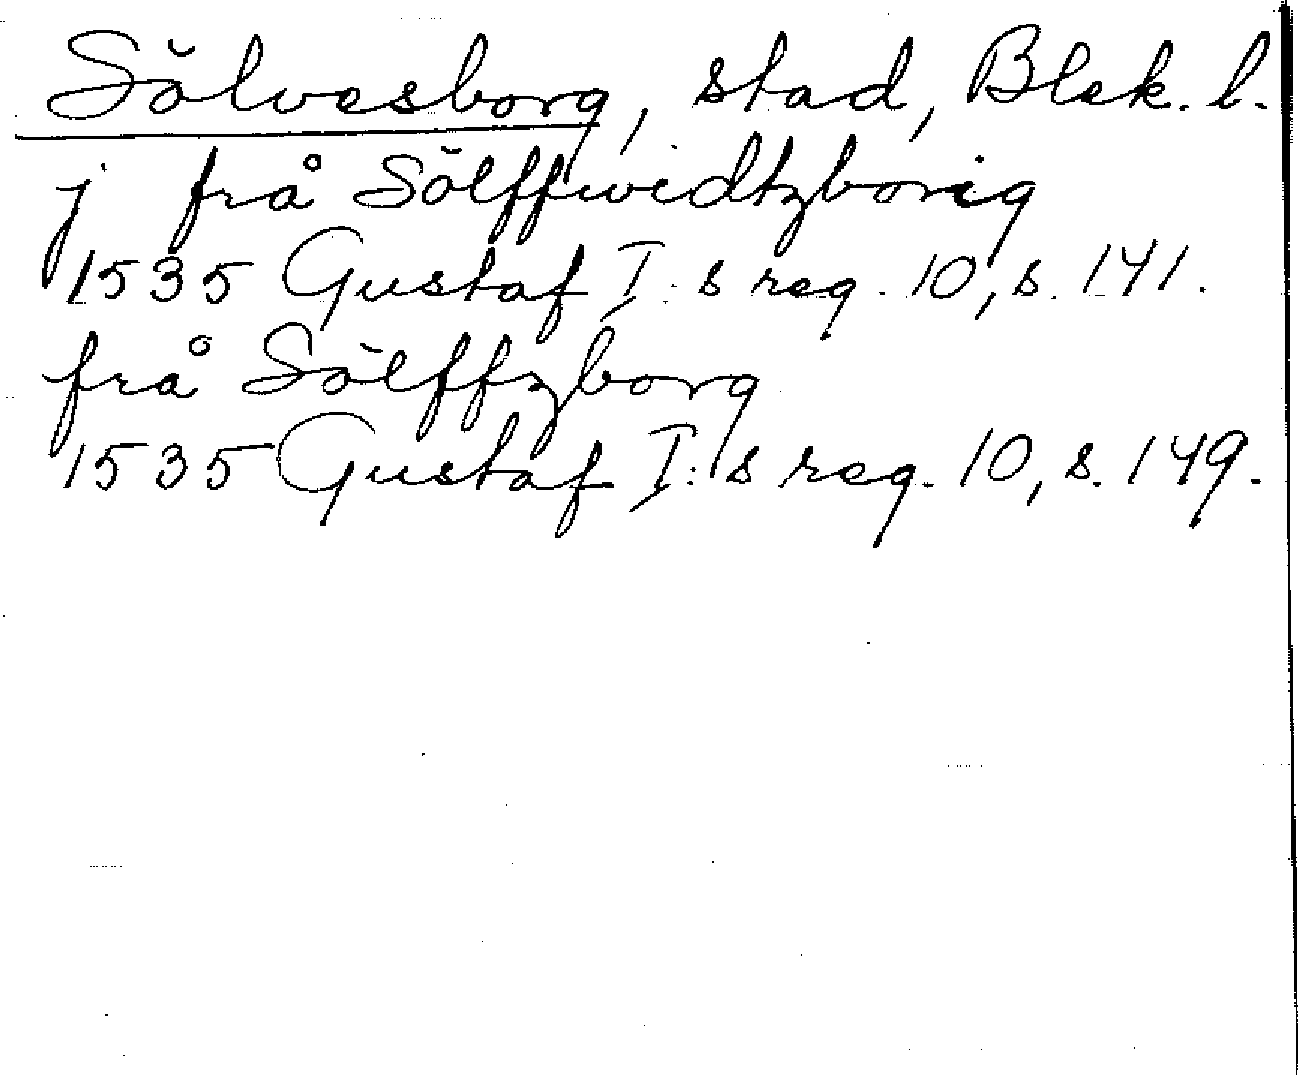 Sölvesborg, stad, Blek. l.
j från Sölffwidtzborig
1535 Gustaf I:s reg. 10, s. 141.
frå Sölffzborg
1535 Gustaf I:s reg. 10, s. 149.